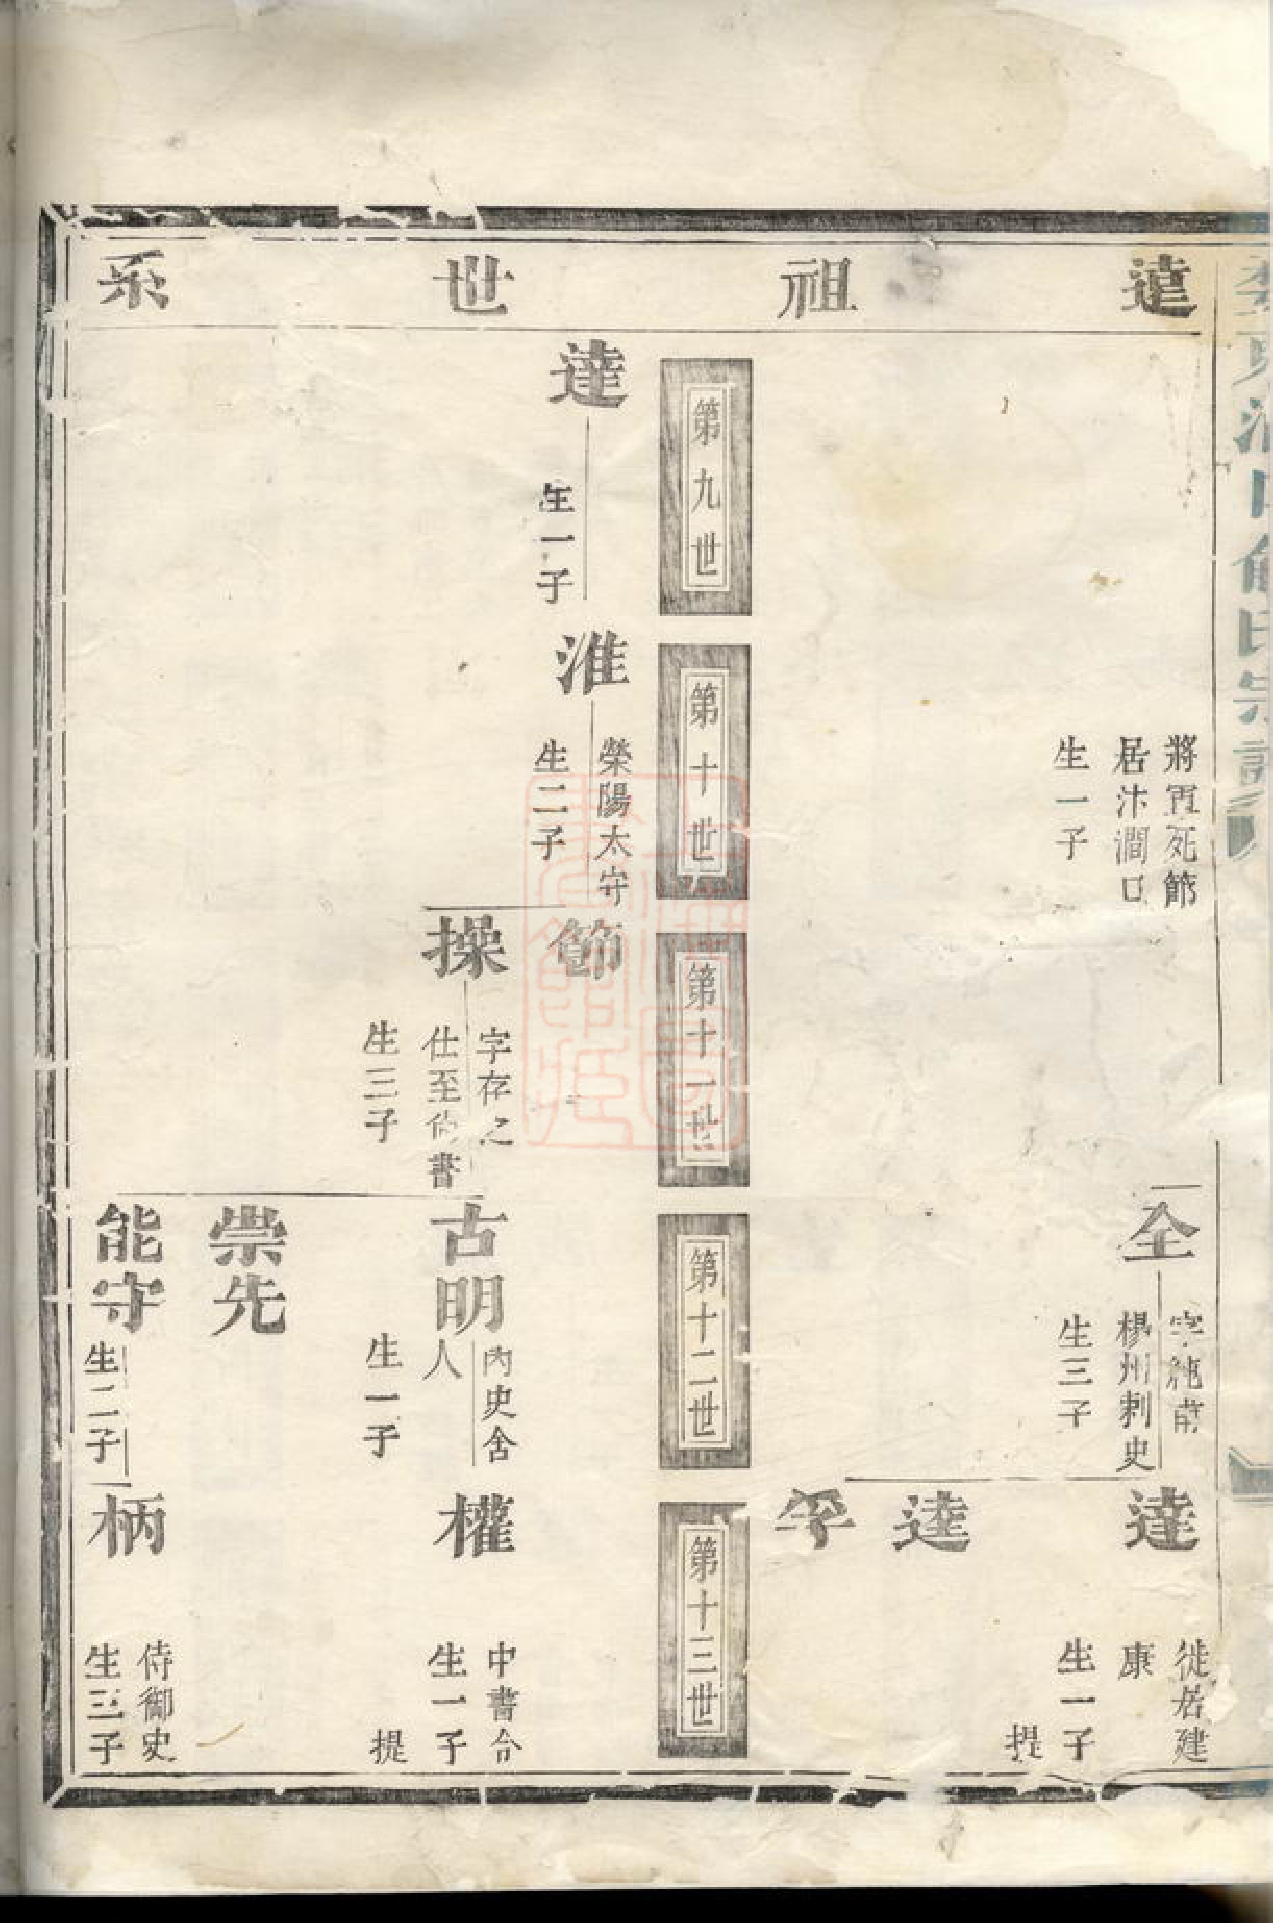 遠祖世系
將軍死節
居汴澗口
生一子
全
楊州刺史
生三子
達
徙居建
康
生一子
提
逵
平
第九世
第十世
第十一世
第十二世
第十三世
達
生一子
淮
榮陽太守
生二子
節
操
字存之
仕至尚書
生三子
古明
內史舍
人
生一子
崇先
能守
生二子
權
中書令
生一子
提
柄
侍御史
生三子